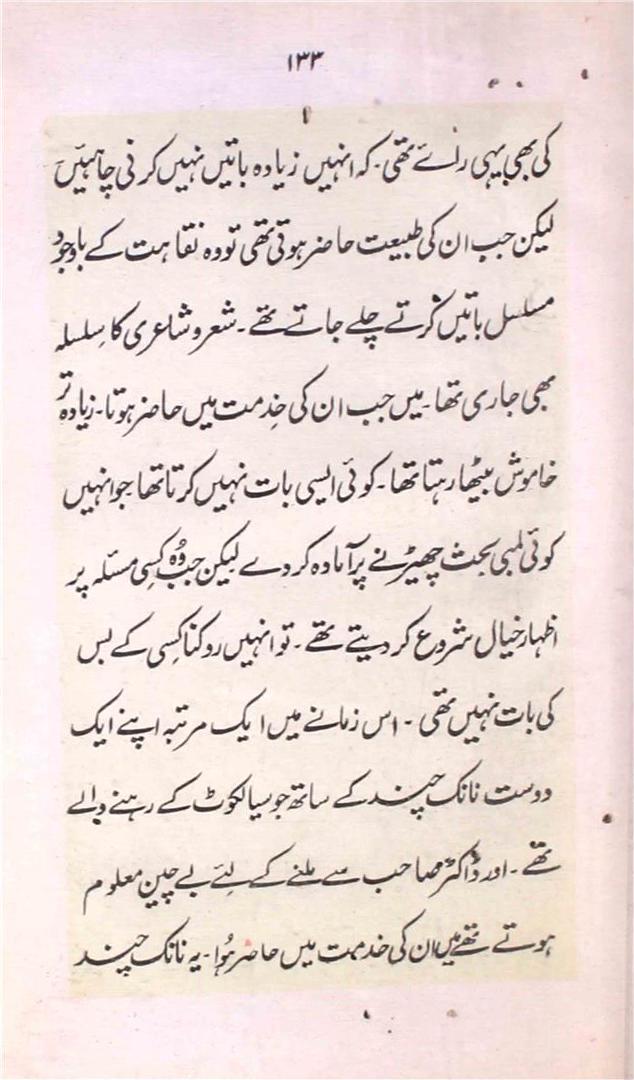 ۱۳۳
کی بھی یہی رائے تھی۔ کہ انہیں زیادہ باتیں نہیں کرنی چاہئیں
لیکن جب ان کی طبیعت حاضر ہوتی تھی تو وہ نقاہت کے باوجود
مسلسل باتیں کرتے چلے جاتے تھے۔ شعر و شاعری کا سِلسلہ
بھی جاری تھا۔ میں جب ان کی خِدمت میں حاضر ہوتا۔ زیادہ تر
خاموش بیٹھا رہتا تھا۔ کوئی ایسی بات نہیں کرتا تھا جو انہیں
کوئی لمبی بحث چھیڑنے پر آمادہ کر دے لیکن جب وُہ کِسی مسئلہ پر
اظہارِ خیال شروع کر دیتے تھے۔ تو انہیں روکنا کِسی کے بس
کی بات نہیں تھی۔ اس زمانے میں ایک مرتبہ اپنے ایک
دوست نانک چند کے ساتھ جو سیالکوٹ کے رہنے والے
تھے۔ اور ڈاکٹر صاحب سے ملنے کے لِئے بے چین معلوم
ہوتے تھے میں ان کی خدمت میں حاضر ہُوا۔ یہ نانک چند